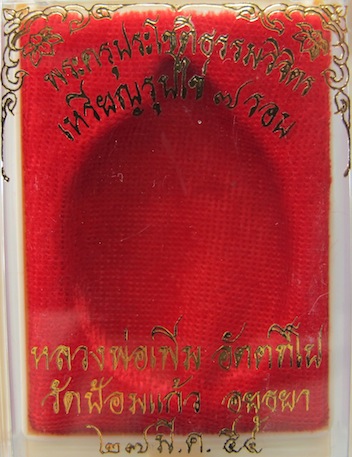 พระครูประโชติธรรมวิจิตร
เหรียญรูปไข่ ๗ รอบ
หลวงพ่อเพิ่ม อัตตทีโป
วัดป้อมแก้ว อยุธยา
๒๗ มี.ค. ๕๔